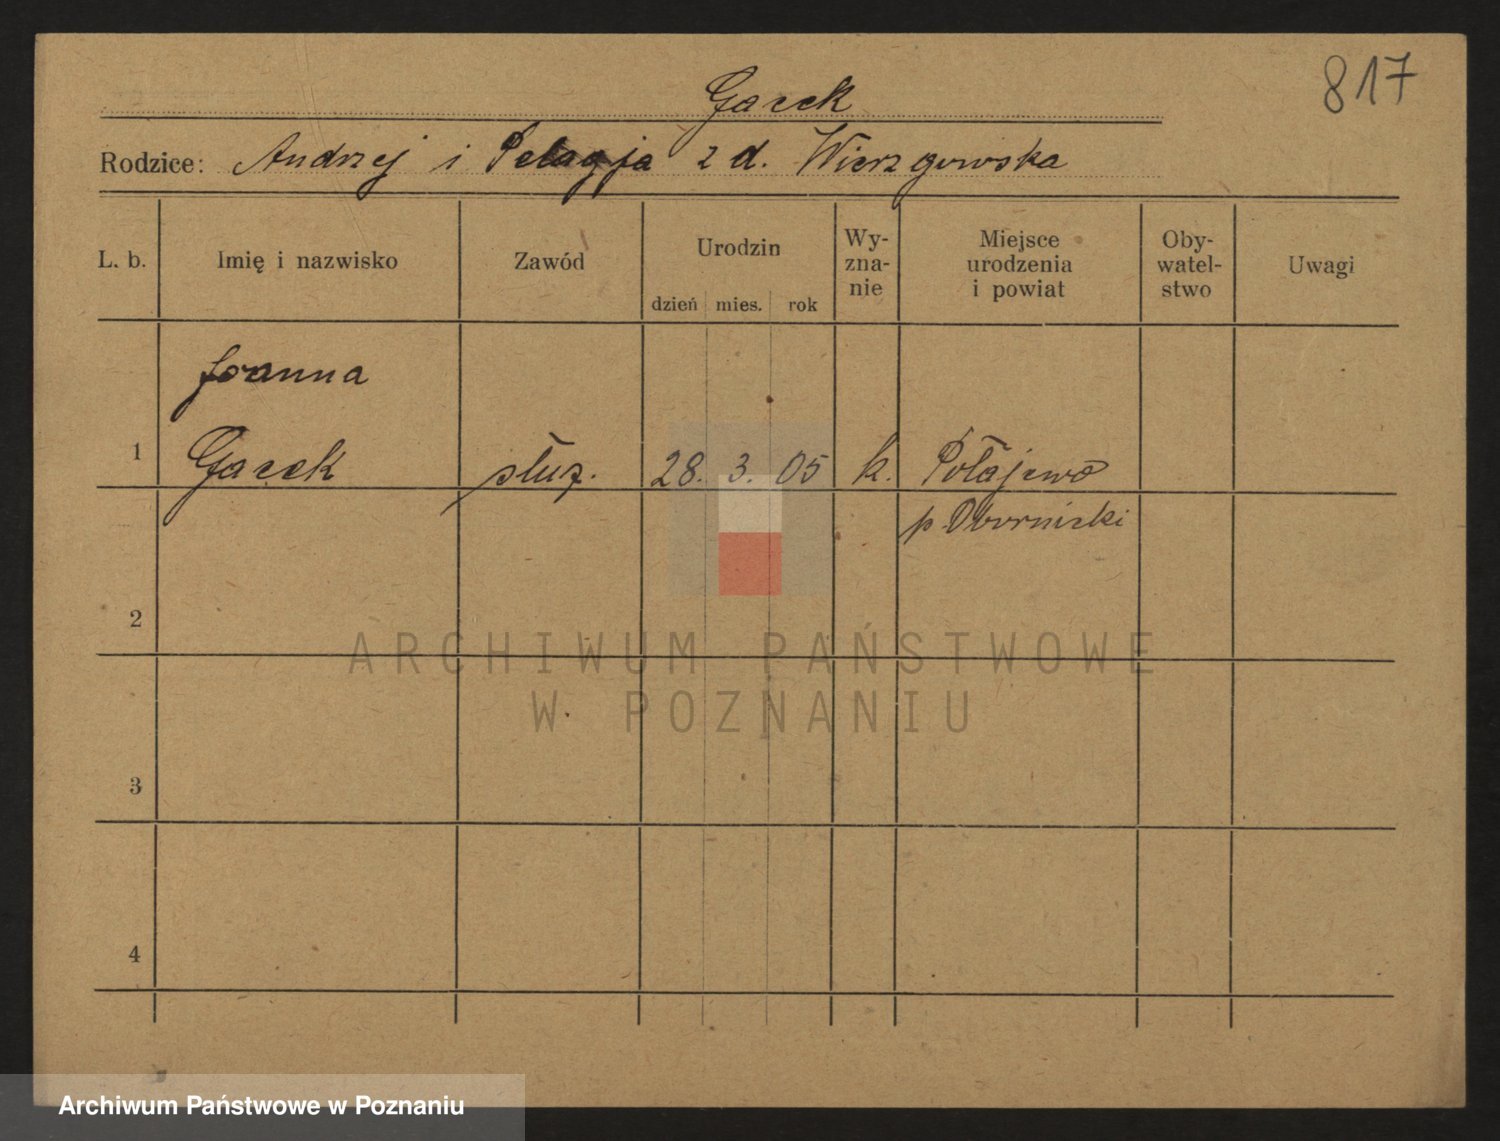 817
Gacek
Rodzice: Andrzej i Pelagja z d. Wierzgowska
L. b. Imię i nazwisko Zawód Urodzin dzień mies. rok Wy-zna-nie Miejsce urodzenia i powiat Oby-watel-stwo Uwagi
Joanna
1 Gacek służ. 28. 3. 05 k. Połajewo
p. Obornicki
2
3
4
ARCHIWUM PAŃSTWOWE
W POZNANIU
Archiwum Państwowe w Poznaniu